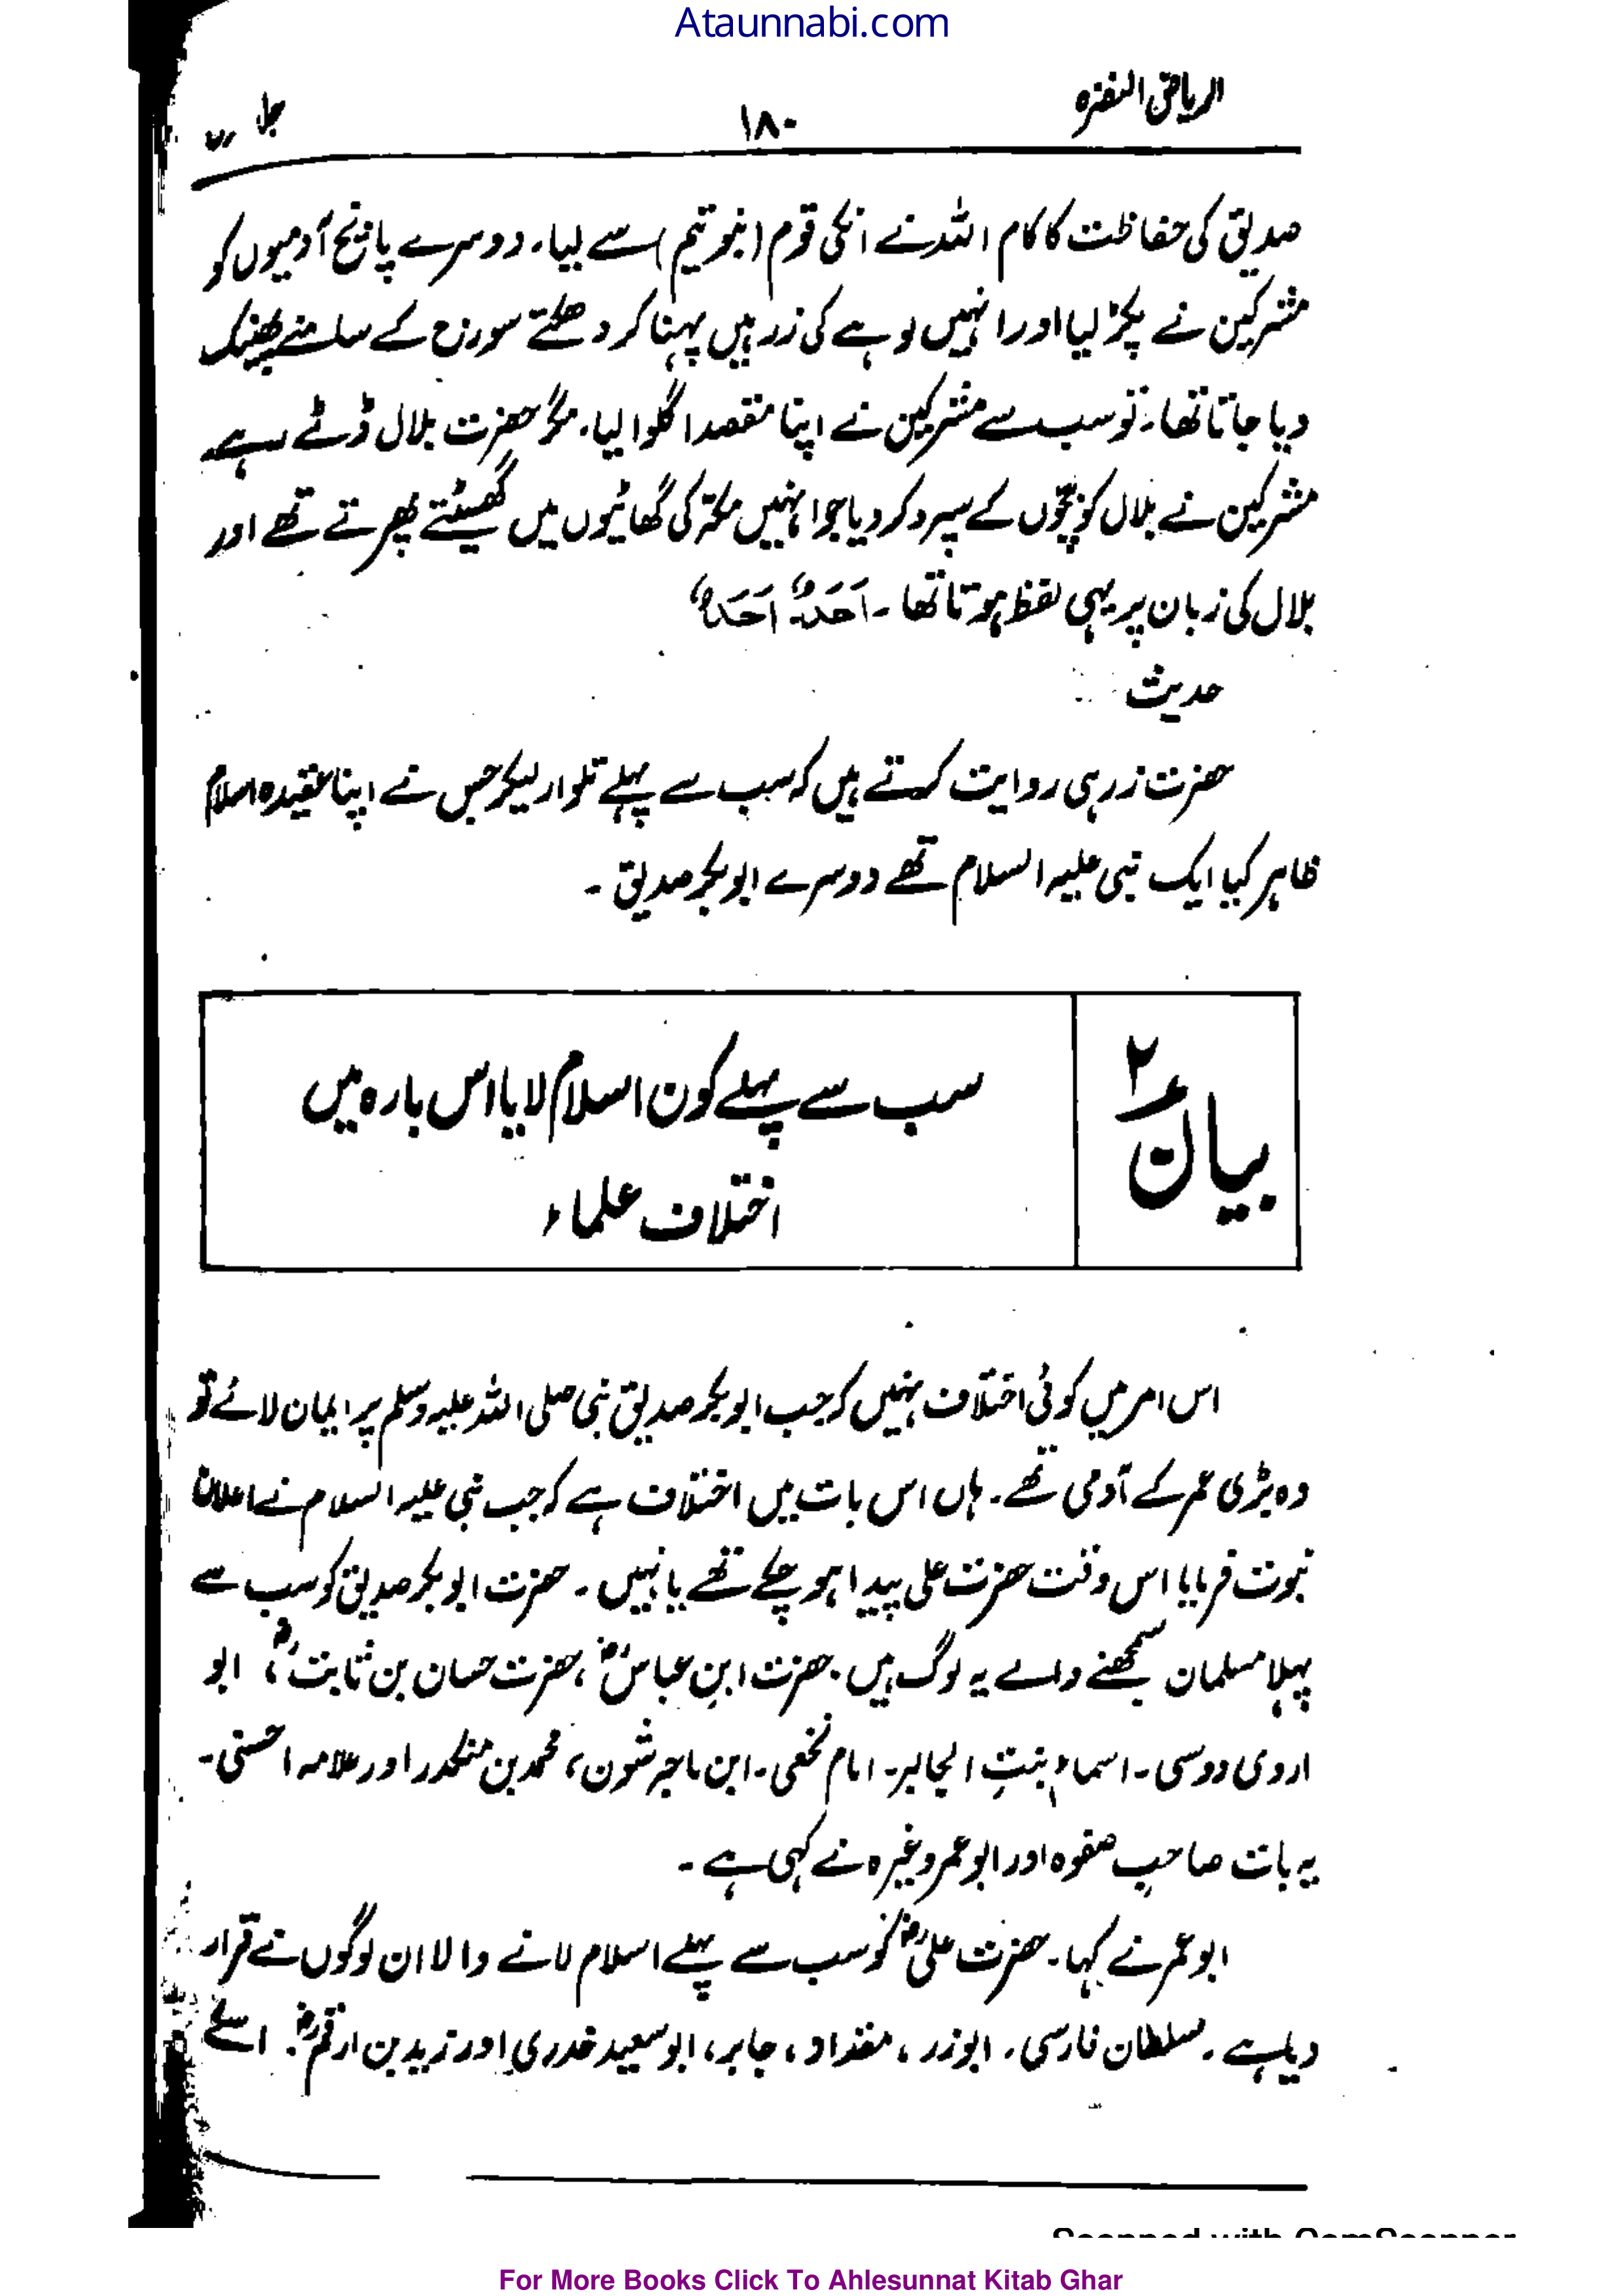 Ataunnabi.com
الریاض النضرہ
۱۸۰
صدیق کی حفاظت کا کام اللہ نے انکی قوم (بنو تیم) سے لیا۔ دوسرے پانچ آدمیوں کو
مشرکین نے پکڑ لیا اور انہیں لوہے کی زرہیں پہنا کر دھکتے سورج کے سامنے پھینک
دیا جاتا تھا۔ تو سب سے مشرکین نے اپنا مقصد اگلوا لیا۔ مگر حضرت بلال ڈٹے رہے
مشرکین نے بلال کو بچّوں کے سپرد کر دیا جو انہیں مکّہ کی گھاٹیوں میں گھسیٹتے پھرتے تھے اور
بلال کی زبان پر یہی لفظ ہوتا تھا۔ اَحَدٌ اَحَدٌ
حدیث
حضرت زرہی روایت کرتے ہیں کہ سب سے پہلے تلوار لیکر جس نے اپنا عقیدہ اسلام
ظاہر کیا ایک نبی علیہ السلام تھے دوسرے ابوبکر صدیق ۔
بیان ۲
سب سے پہلے کون اسلام لایا اس بارہ میں
اختلاف علماء
اس امر میں کوئی اختلاف نہیں کہ جب ابوبکر صدیق نبی صلی اللہ علیہ وسلم پر ایمان لائے تو
وہ بڑی عمر کے آدمی تھے ۔ ہاں اس بات میں اختلاف ہے کہ جب نبی علیہ السلام نے اعلان
نبوت فرمایا اس وقت حضرت علی پیدا ہو چکے تھے یا نہیں ۔ حضرت ابوبکر صدیق کو سب سے
پہلا مسلمان سمجھنے والے یہ لوگ ہیں ۔ حضرت ابنِ عباسؓ، حضرت حسان بن ثابتؓ، ابو
اروی دوسی ۔ اسماء بنتِ ابی بکر ۔ امام نخعی ۔ ابن ماجشون، محمد بن منکدر اور علامہ اخنسی ۔
یہ بات صاحبِ صفوہ اور ابو عمر وغیرہ نے کہی ہے ۔
ابو عمر نے کہا ۔ حضرت علیؓ کو سب سے پہلے اسلام لانے والا ان لوگوں نے قرار
دیا ہے ۔ سلطان فارسی ۔ ابوذر ، مقداد ، جابر، ابو سعید خدری اور زید بن ارقمؓ ۔ اسکے
Scanned with CamScanner
For More Books Click To Ahlesunnat Kitab Ghar